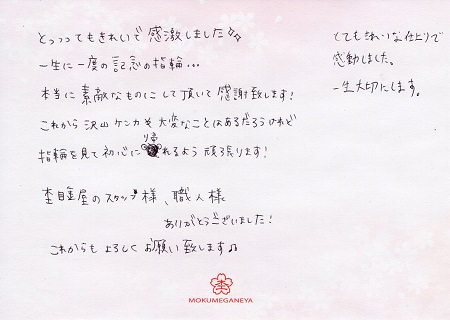 とっっってもきれいで感激しました☆
一生に一度の記念の指輪...
本当に素敵なものにして頂いて感謝致します!
これから沢山ケンカや大変なことはあるだろうけれど
指輪を見て初心に帰れるよう頑張ります!
杢目屋のスタッフ様、職人様
ありがとうございました!
これからもよろしくお願い致します♪
とてもきれいな仕上りで
感動しました。
一生大切にします。
MOKUMEGANEYA